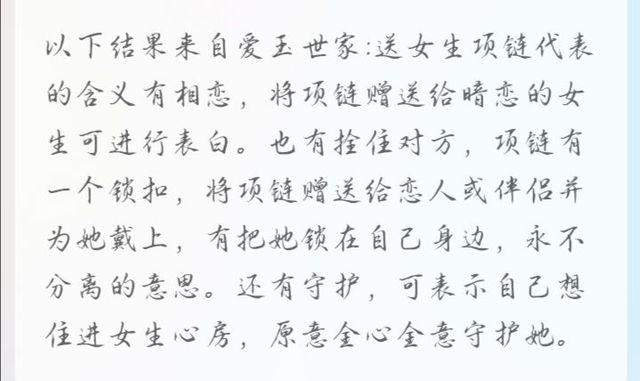 以下结果来自爱玉世家:送女生项链代表
的含义有相恋，将项链赠送给暗恋的女
生可进行表白。也有拴住对方，项链有
一个锁扣，将项链赠送给恋人或伴侣并
为她戴上，有把她锁在自己身边，永不
分离的意思。还有守护，可表示自己想
住进女生心房，原意全心全意守护她。